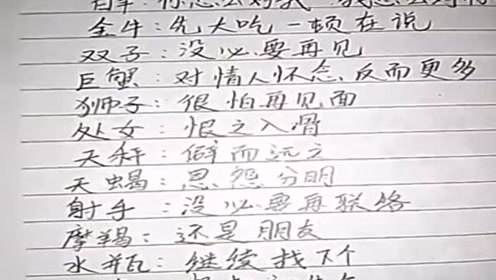 金牛：先大吃一顿在说
双子：没必要再见
巨蟹：对情人怀念、反而更多
狮子：很怕再见面
处女：恨之入骨
天秤：僻而远之
天蝎：恩怨分明
射手：没必要再联络
摩羯：还是朋友
水瓶：继续找下个